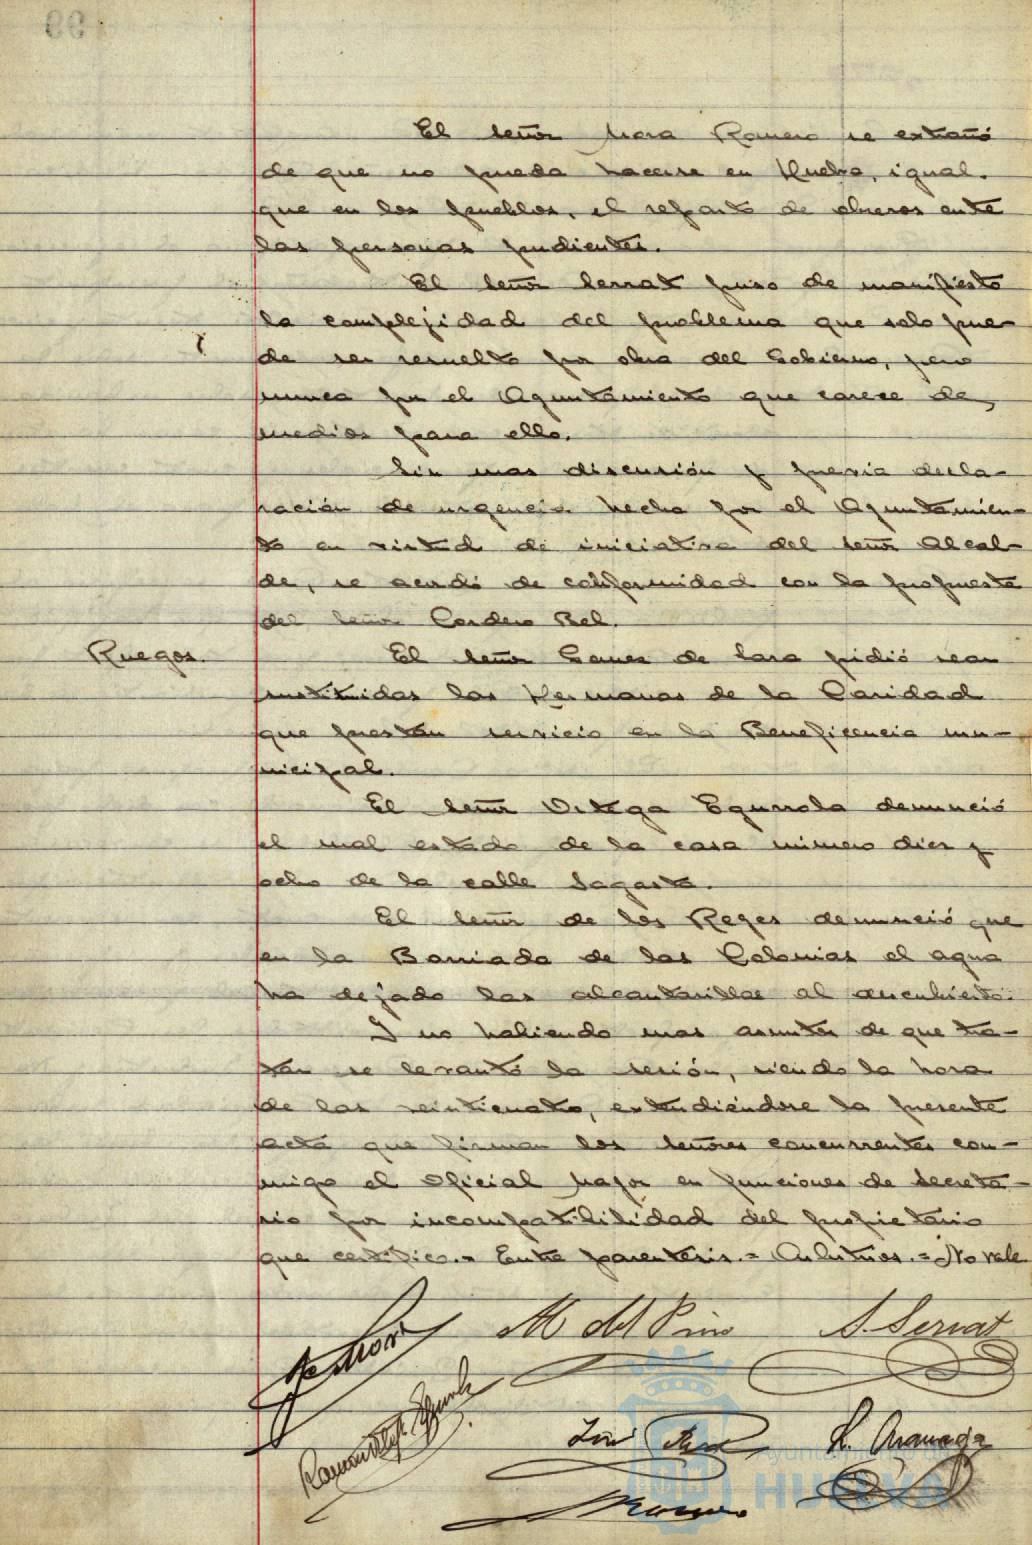 El señor Mora Romero se extrañó
de que no pueda hacerse en Huelva, igual
que en los pueblos, el reparto de obreros entre
las personas pudientes.
El señor Serrat puso de manifiesto
la complejidad del problema que solo pue-
de ser resuelto por obra del Gobierno, pero
nunca por el Ayuntamiento que carece de
medios para ello.
Sin mas discusión y previa decla-
ración de urgencia hecha por el Ayuntamien-
to en virtud de iniciativa del señor Alcal-
de, se acordó de conformidad con la propuesta
del señor Cordero Bel.
Ruegos.
El señor Gomez de Lara pidió sean
sustituidas las Hermanas de la Caridad
que prestan servicio en la Beneficencia mu-
nicipal.
El señor Ortega Egurrola denunció
el mal estado de la casa número diez y
ocho de la calle Sagasta.
El señor de los Reyes denunció que
en la Barriada de las Colonias el agua
ha dejado las alcantarillas al descubierto.
Y no habiendo mas asuntos de que tra-
tar se levantó la sesión, siendo la hora
de las veinticuatro, extendiéndose la presente
acta que firman los señores concurrentes con-
migo el Oficial Mayor en funciones de Secreta-
rio por incompatibilidad del propietario
que certifico.= Entre parentesis.= No vale
M del Pino
S. Serrat
José
Ayuntamiento de
HUELVA